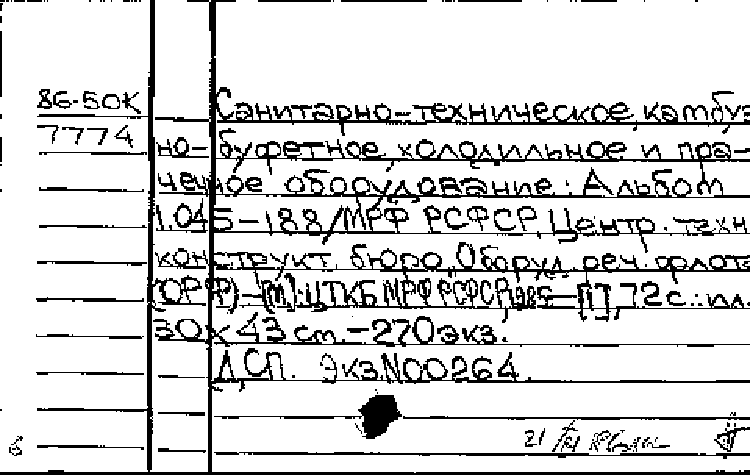 86-50К
7774
Санитарно-техническое, камбуз
но-буфетное, холодильное и пра-
чечное оборудование: Альбом
1.045-188/МРФ РСФСР, Центр. техн
конструкт. бюро „Оборуд. реч. флота
(ОРФ). – [М]: ЦТКБ МРФ РСФСР, 1985 – [1], 72 с.: пл.
30×43 см. – 270 экз.
ДСП. Экз. N 00264.
21
6